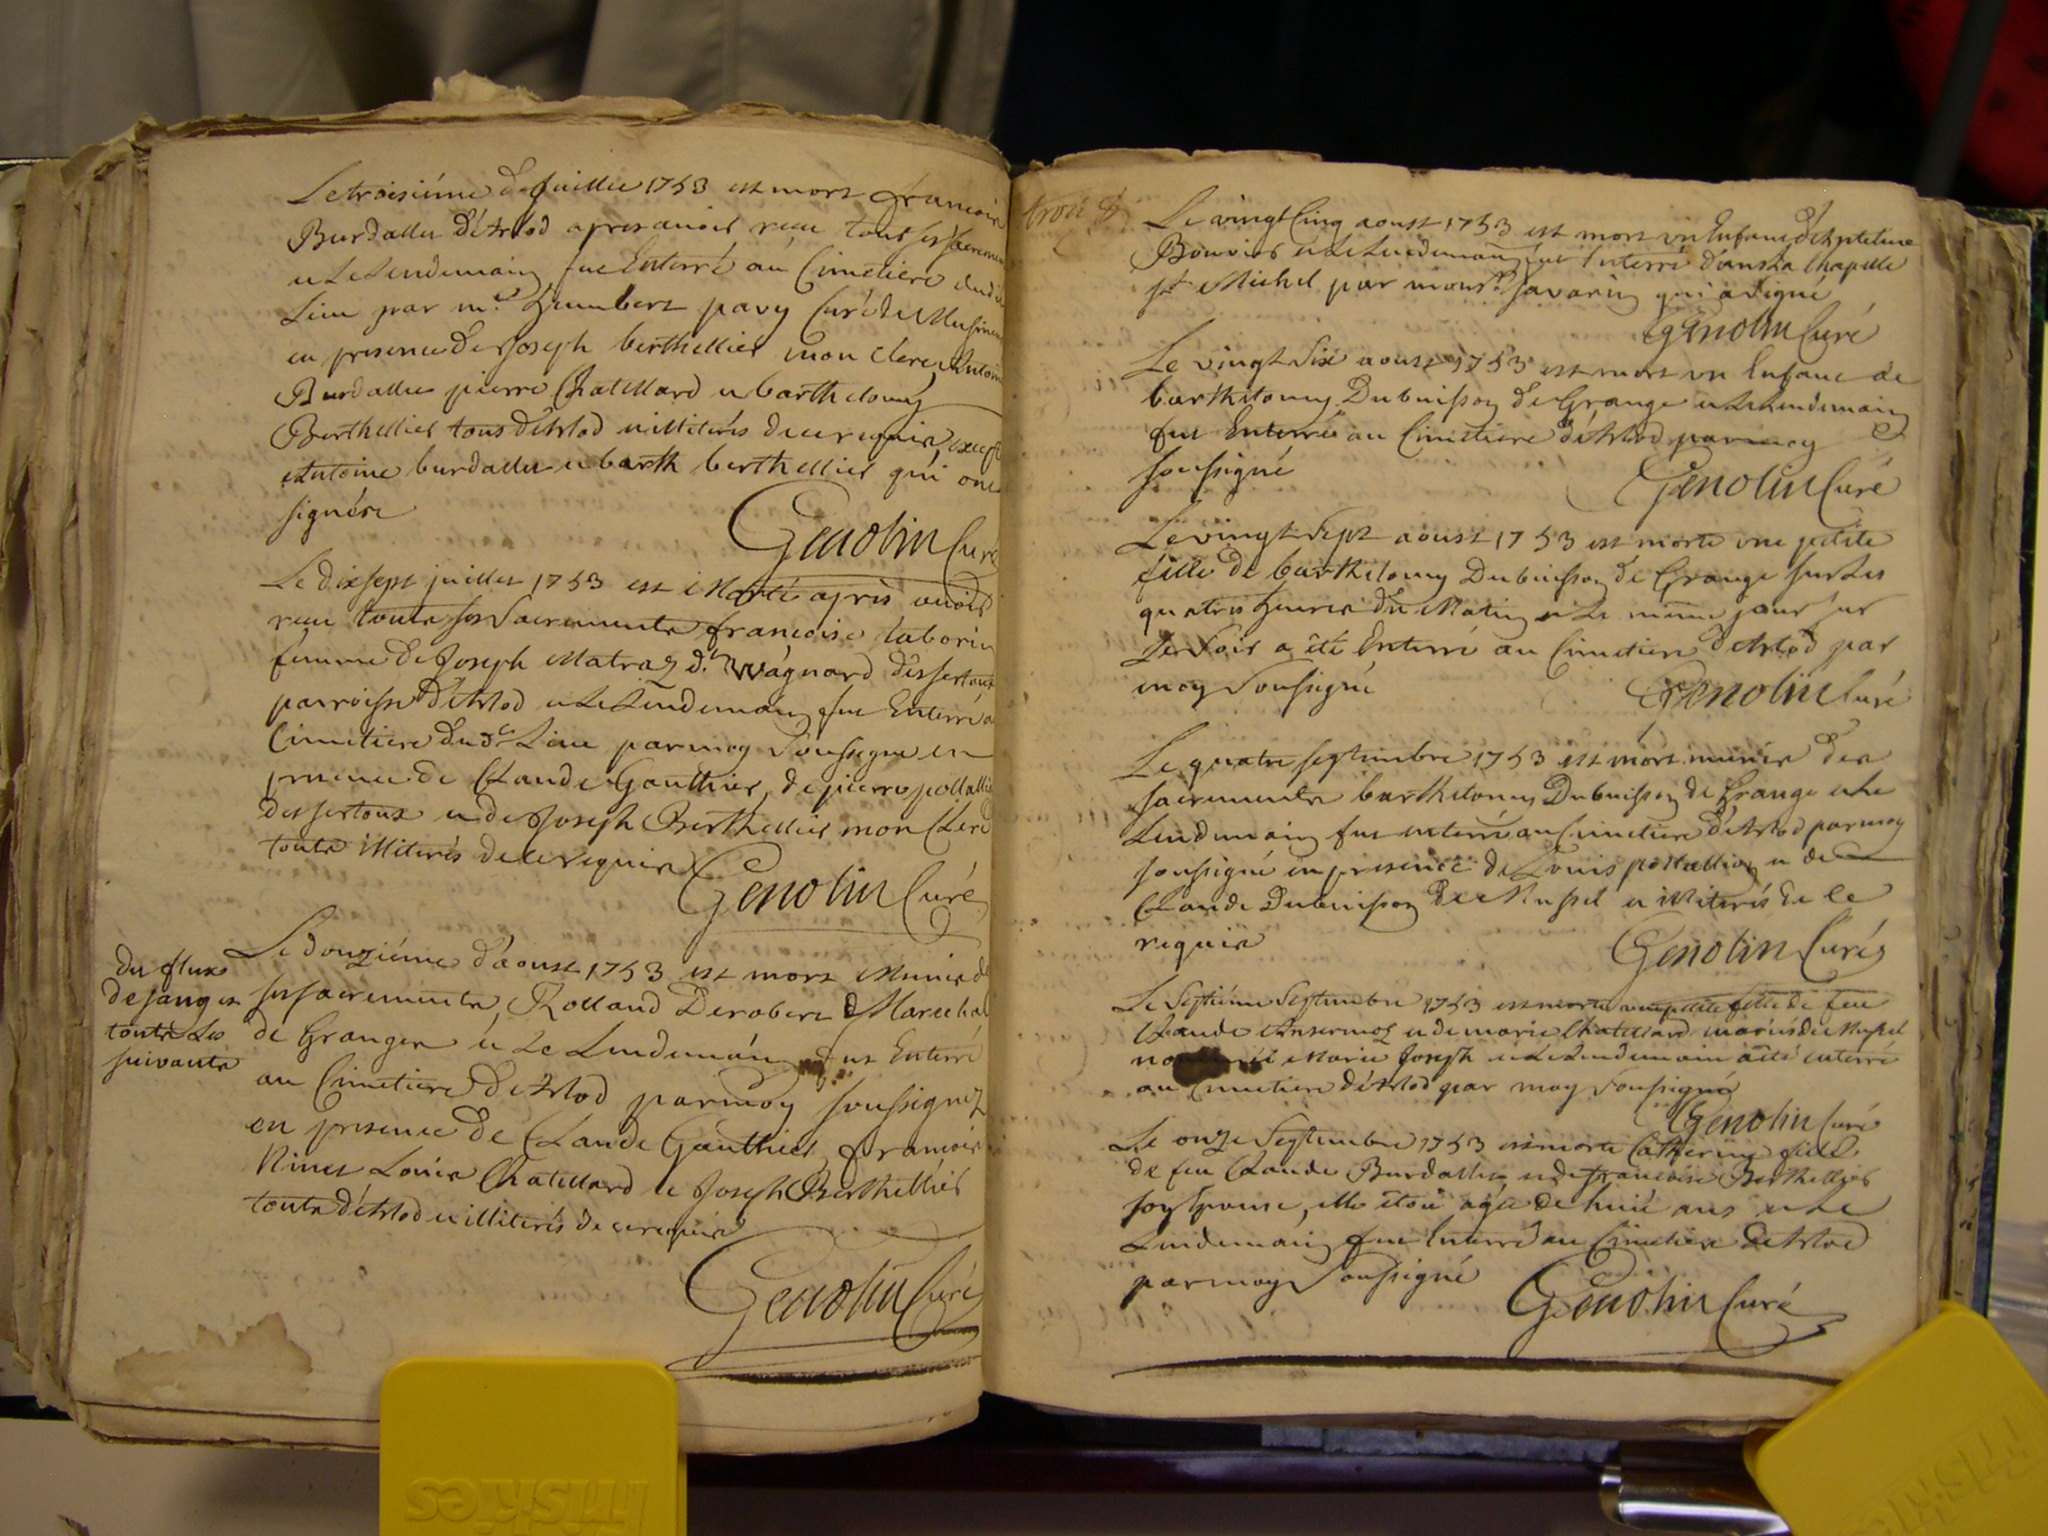 Le troisiéme de Juillie 1753 est mort francois
Burdallie d'Arlod apres avoir reçu tous ses sacremen
et Le Lendemain fut Enterré au Cimetiere dudi
Lieu par mr. humbert pavy Curé de Musine
en presence de Joseph berthellier mon clerc, Antoin
Burdallie pierre Chatillard et barthelomy
Berthellier tous d'Arlod et illiterés de ce requis, except
Antoine burdallie et barth berthellier qui ont
signéss
Genolin Curé
Le dixsept juillet 1753 est Morte après avoir
reçu touts ses Sacrements francoise taborin
femme de Joseph Matraz dt. Wagnard d'essertoux
parroisse d'Arlod et Le Lendemain fut Enterré a
Cimetiere du dt Lieu par moy soussigne en
presence de Claude Gauthier, de pierre pollalli
d'essertoux et de Joseph Berthellier mon Clerc
touts illiterés de ce requis Genolin Curé
du flux
de sang et
touts Les
suivants
Le douziéme d'aoust 1753 est mort Munis de
ses sacrements, Rolland Derobert Marechal
de Granges et Le Lendemain fut Enterré
au Cimetiere d'Arlod par moy soussignez
en presence de Claude Gauthier francois
Ninet Louis Chatillard et Joseph Berthellier
touts d'Arlod et illiterés de ce requis
Genolin Curé
Le vingt Cinq aoust 1753 est mort un Enfant d'
Bouvier et Le Lendemain fut Enterré dans La Chapelle
st Michel par monsr. savarin qui a signé
Genolin Curé
Le vingt Six aoust 1753 est mort un Enfant de
barthelomy Dubuisson de Grange et Le Lendemain
fut Enterré au Cimetiere d'Arlod par moy
soussigné
Genolin Curé
Le vingt Sept aoust 1753 est morte une petite
fille de barthelomy Dubuisson de Grange sur Les
quatres heures du Matin et Le même jour sur
Le Soir a été Enterré au Cimetiere d'Arlod par
moy Soussigné
Genolin Curé
Le quatre septembre 1753 est mort munis des
sacrements barthelomy Dubuisson de Grange et Le
Lendemain fut enterré au Cimetiere d'Arlod par moy
soussigné en presence de Louis pollallion et de
Claude Dubuisson de Mussel et illiterés de ce
requis
Genolin Curés
Le Septiéme Septembre 1753 est morte une petite fille de feu
Claude Ansermoz et de marie Chatillard mariés de Mussel
Marie Joseph et Le Lendemain a été enterré
au Cimetiere d'Arlod par moy Soussigné
Genolin Curé
Le onze Septembre 1753 est morte Catherine fille
de feu Claude Burdallie et de francoise Berthellier
son Epouse, elle étoit agée de huit ans et Le
Lendemain fut Enterré au Cimetiere d'Arlod
par moy Soussigné
Genolin Curé